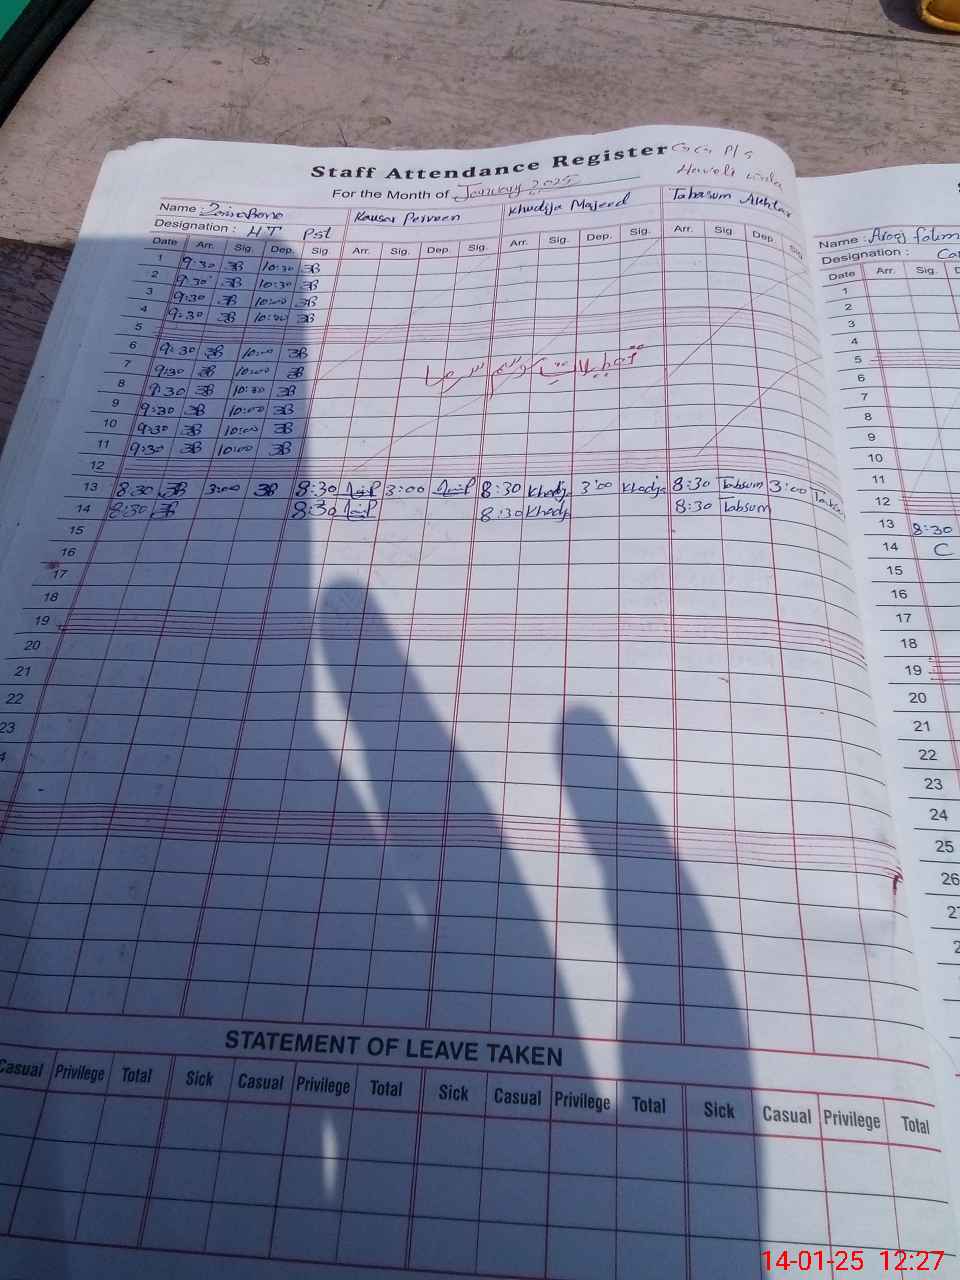 Staff Attendance Register GGCM P/S
For the Month of January 2025 Haveli
Name : Zainab Kausar Perveen Khudija Majeed Tabasum Akhtar
Designation : HT Pst
Date Arr. Sig. Dep. Sig. Arr. Sig. Dep. Sig. Arr. Sig. Dep. Sig. Arr. Sig. Dep. Sig.
1 9:30 ZB 10:30 ZB
2 9:30 ZB 10:30 ZB
3 9:30 ZB 10:00 ZB
4 9:30 ZB 10:00 ZB
5
6 9:30 ZB 10:00 ZB
7 9:30 ZB 10:00 ZB
تعطیلات موسم سرما
8 9:30 ZB 10:30 ZB
9 9:30 ZB 10:00 ZB
10 9:30 ZB 10:00 ZB
11 9:30 ZB 10:00 ZB
12
13 8:30 ZB 3:00 ZB 8:30 3:00 8:30 Khadij 3:00 Khadija 8:30 Tabsum 3:00 Tabsum
14 8:30 ZB 8:30 8:30 Khadij 8:30 Tabsum
15
16
17
18
19
20
21
22
23
4
STATEMENT OF LEAVE TAKEN
Casual Privilege Total Sick Casual Privilege Total Sick Casual Privilege Total Sick Casual Privilege Total
S
Name : Arooj
Designation :
Date Arr. Sig. D
1
2
3
4
5
6
7
8
9
10
11
12
13 8:30
14 C
15
16
17
18
19
20
21
22
23
24
25
26
14-01-25 12:27